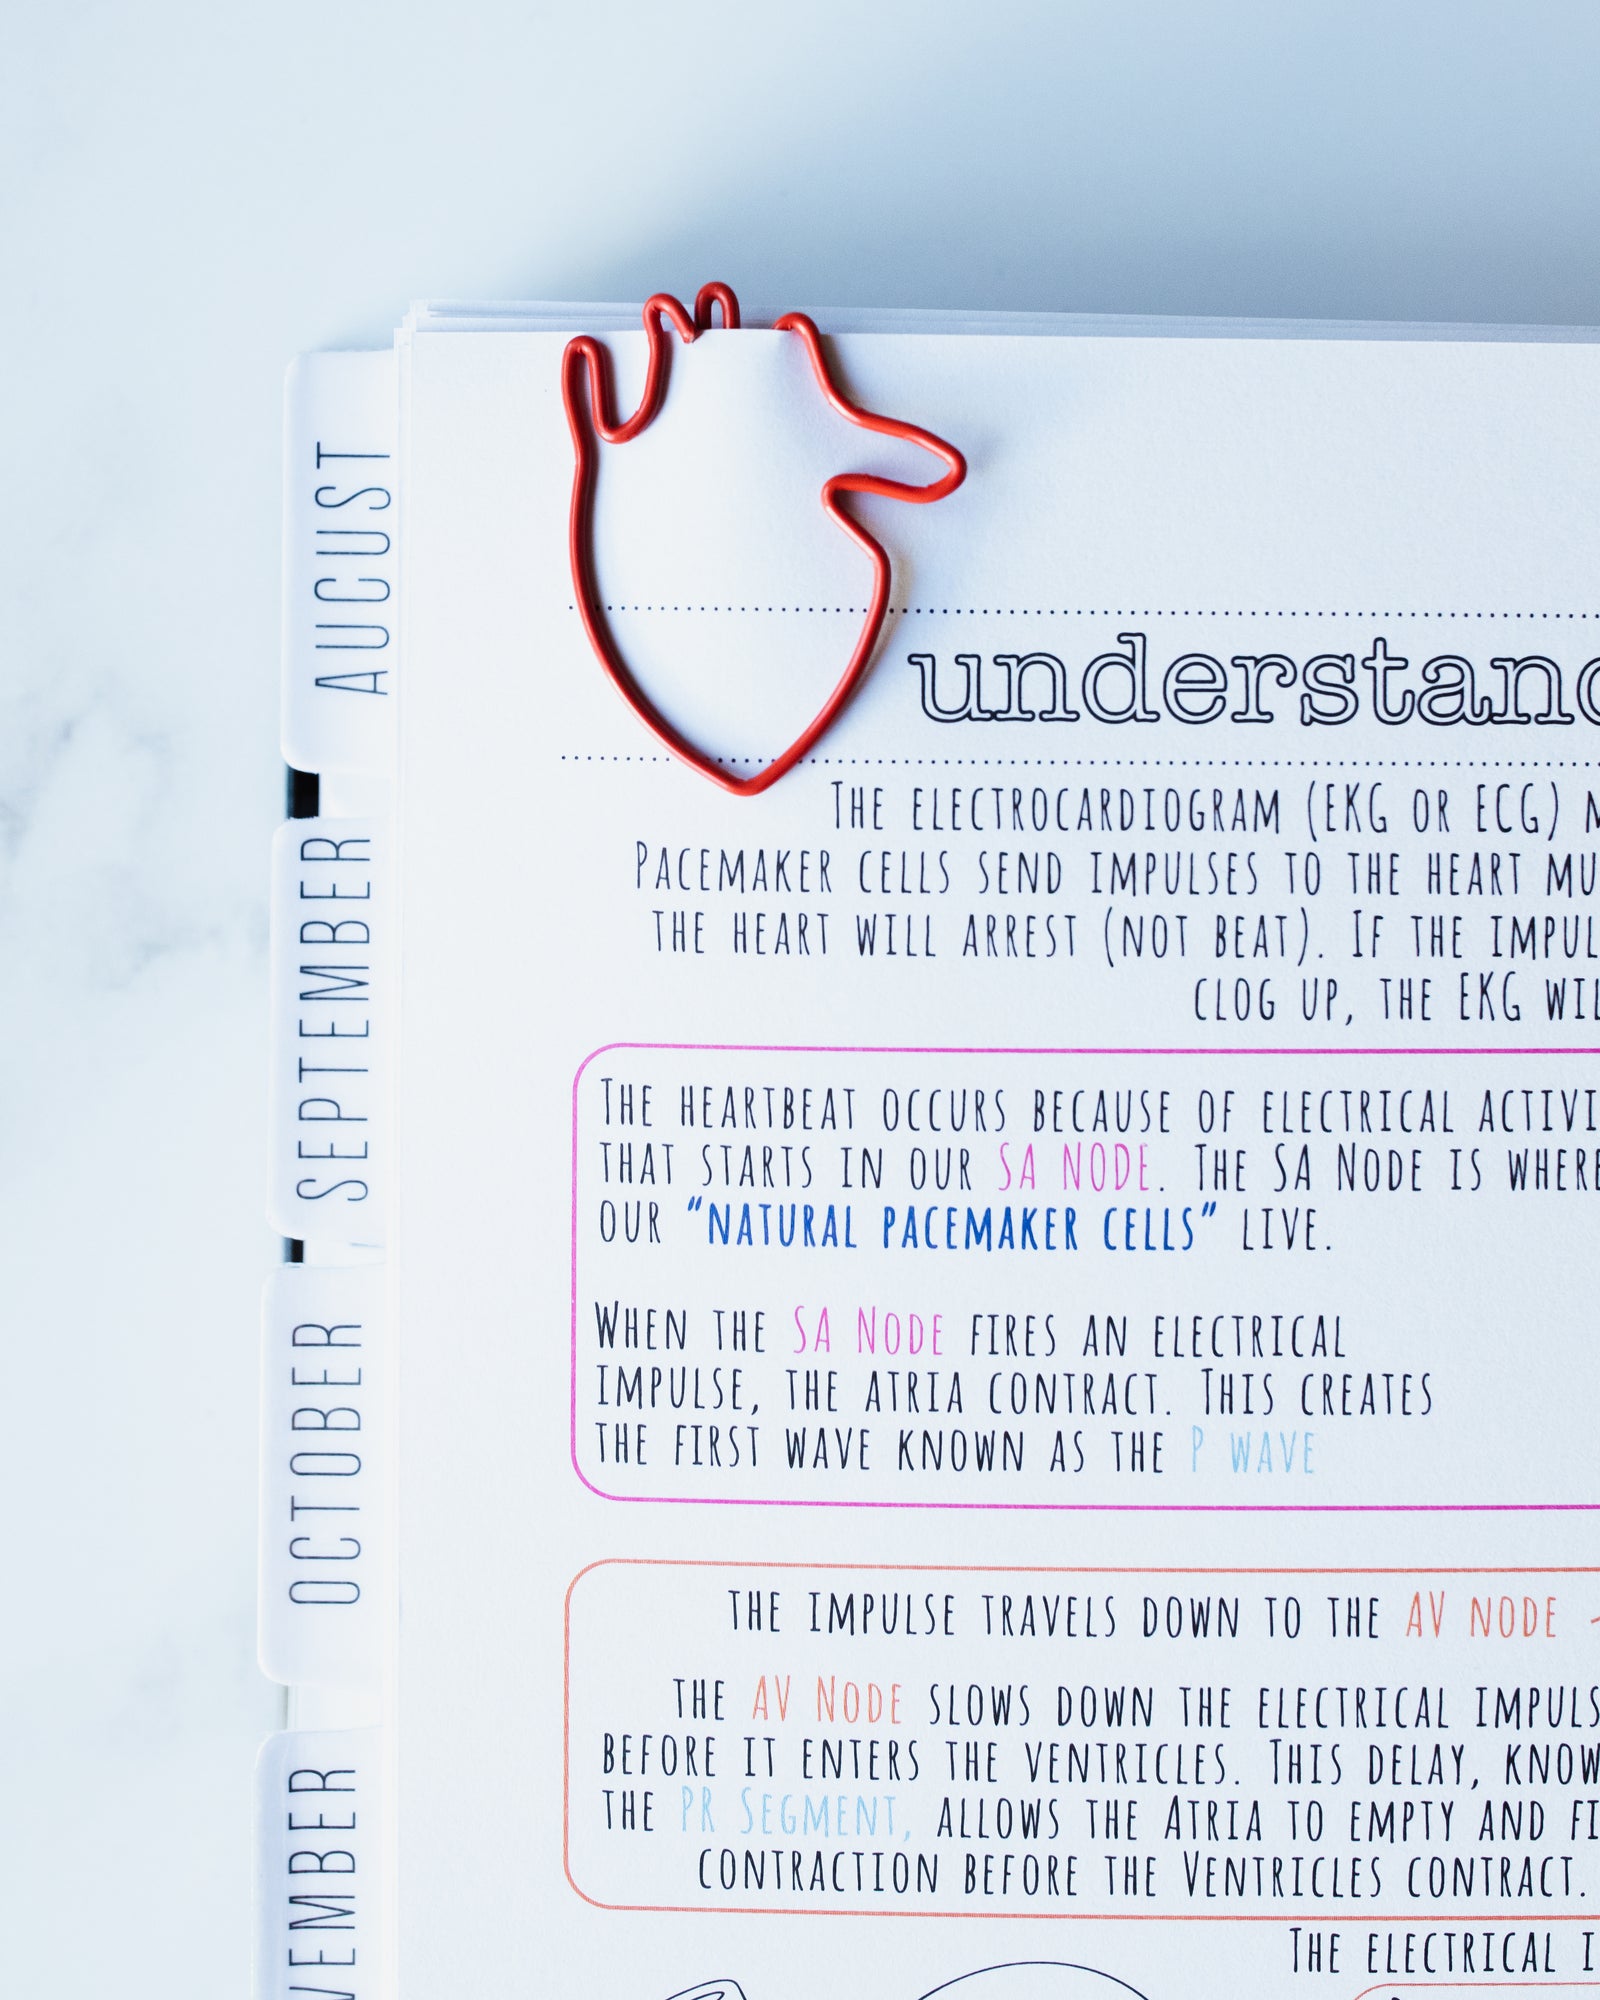 AUGUST
SEPTEMBER
OCTOBER
VEMBER
understand
THE ELECTROCARDIOGRAM (EKG OR ECG)
PACEMAKER CELLS SEND IMPULSES TO THE HEART MU
THE HEART WILL ARREST (NOT BEAT). IF THE IMPUL
CLOG UP, THE EKG WIL
THE HEARTBEAT OCCURS BECAUSE OF ELECTRICAL ACTIVI
THAT STARTS IN OUR SA NODE. THE SA NODE IS WHERE
OUR "NATURAL PACEMAKER CELLS" LIVE.
WHEN THE SA NODE FIRES AN ELECTRICAL
IMPULSE, THE ATRIA CONTRACT. THIS CREATES
THE FIRST WAVE KNOWN AS THE P WAVE
THE IMPULSE TRAVELS DOWN TO THE AV NODE -
THE AV NODE SLOWS DOWN THE ELECTRICAL IMPULS
BEFORE IT ENTERS THE VENTRICLES. THIS DELAY, KNOW
THE PR SEGMENT, ALLOWS THE ATRIA TO EMPTY AND FI
CONTRACTION BEFORE THE VENTRICLES CONTRACT.
THE ELECTRICAL I